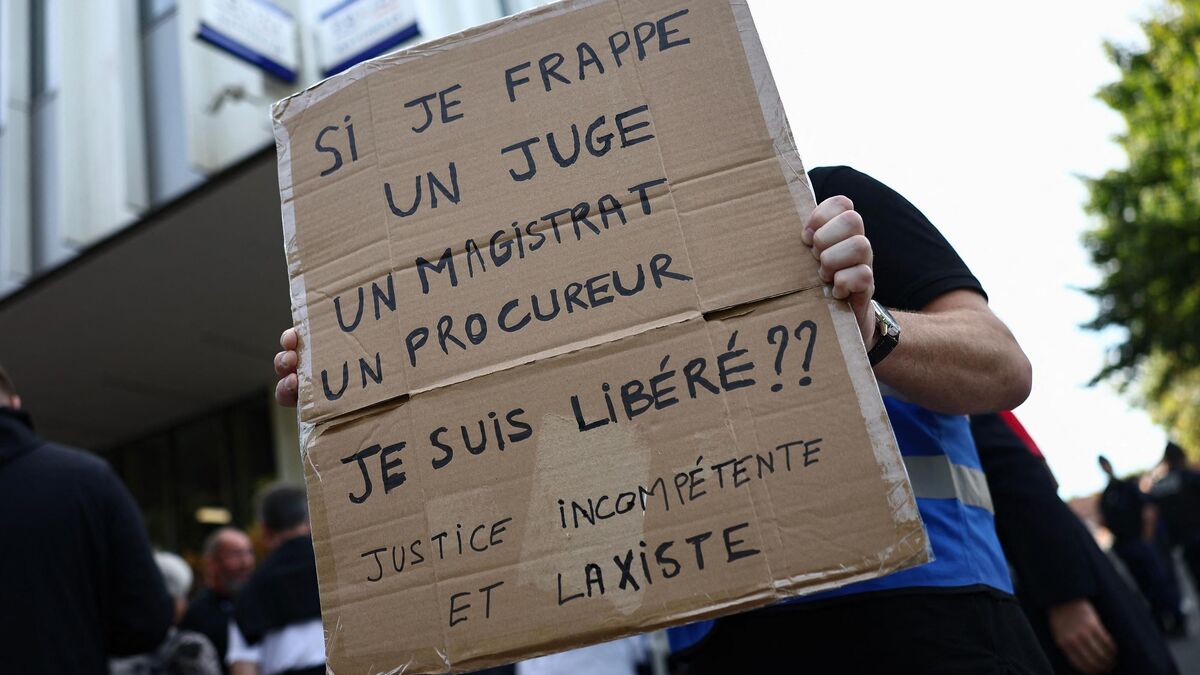 Si JE FRAPPE
UN JUGE
UN MAGISTRAT
UN PROCUREUR
JE SUIS LIBÉRÉ??
JUSTICE INCOMPÉTENTE
ET LAXISTE